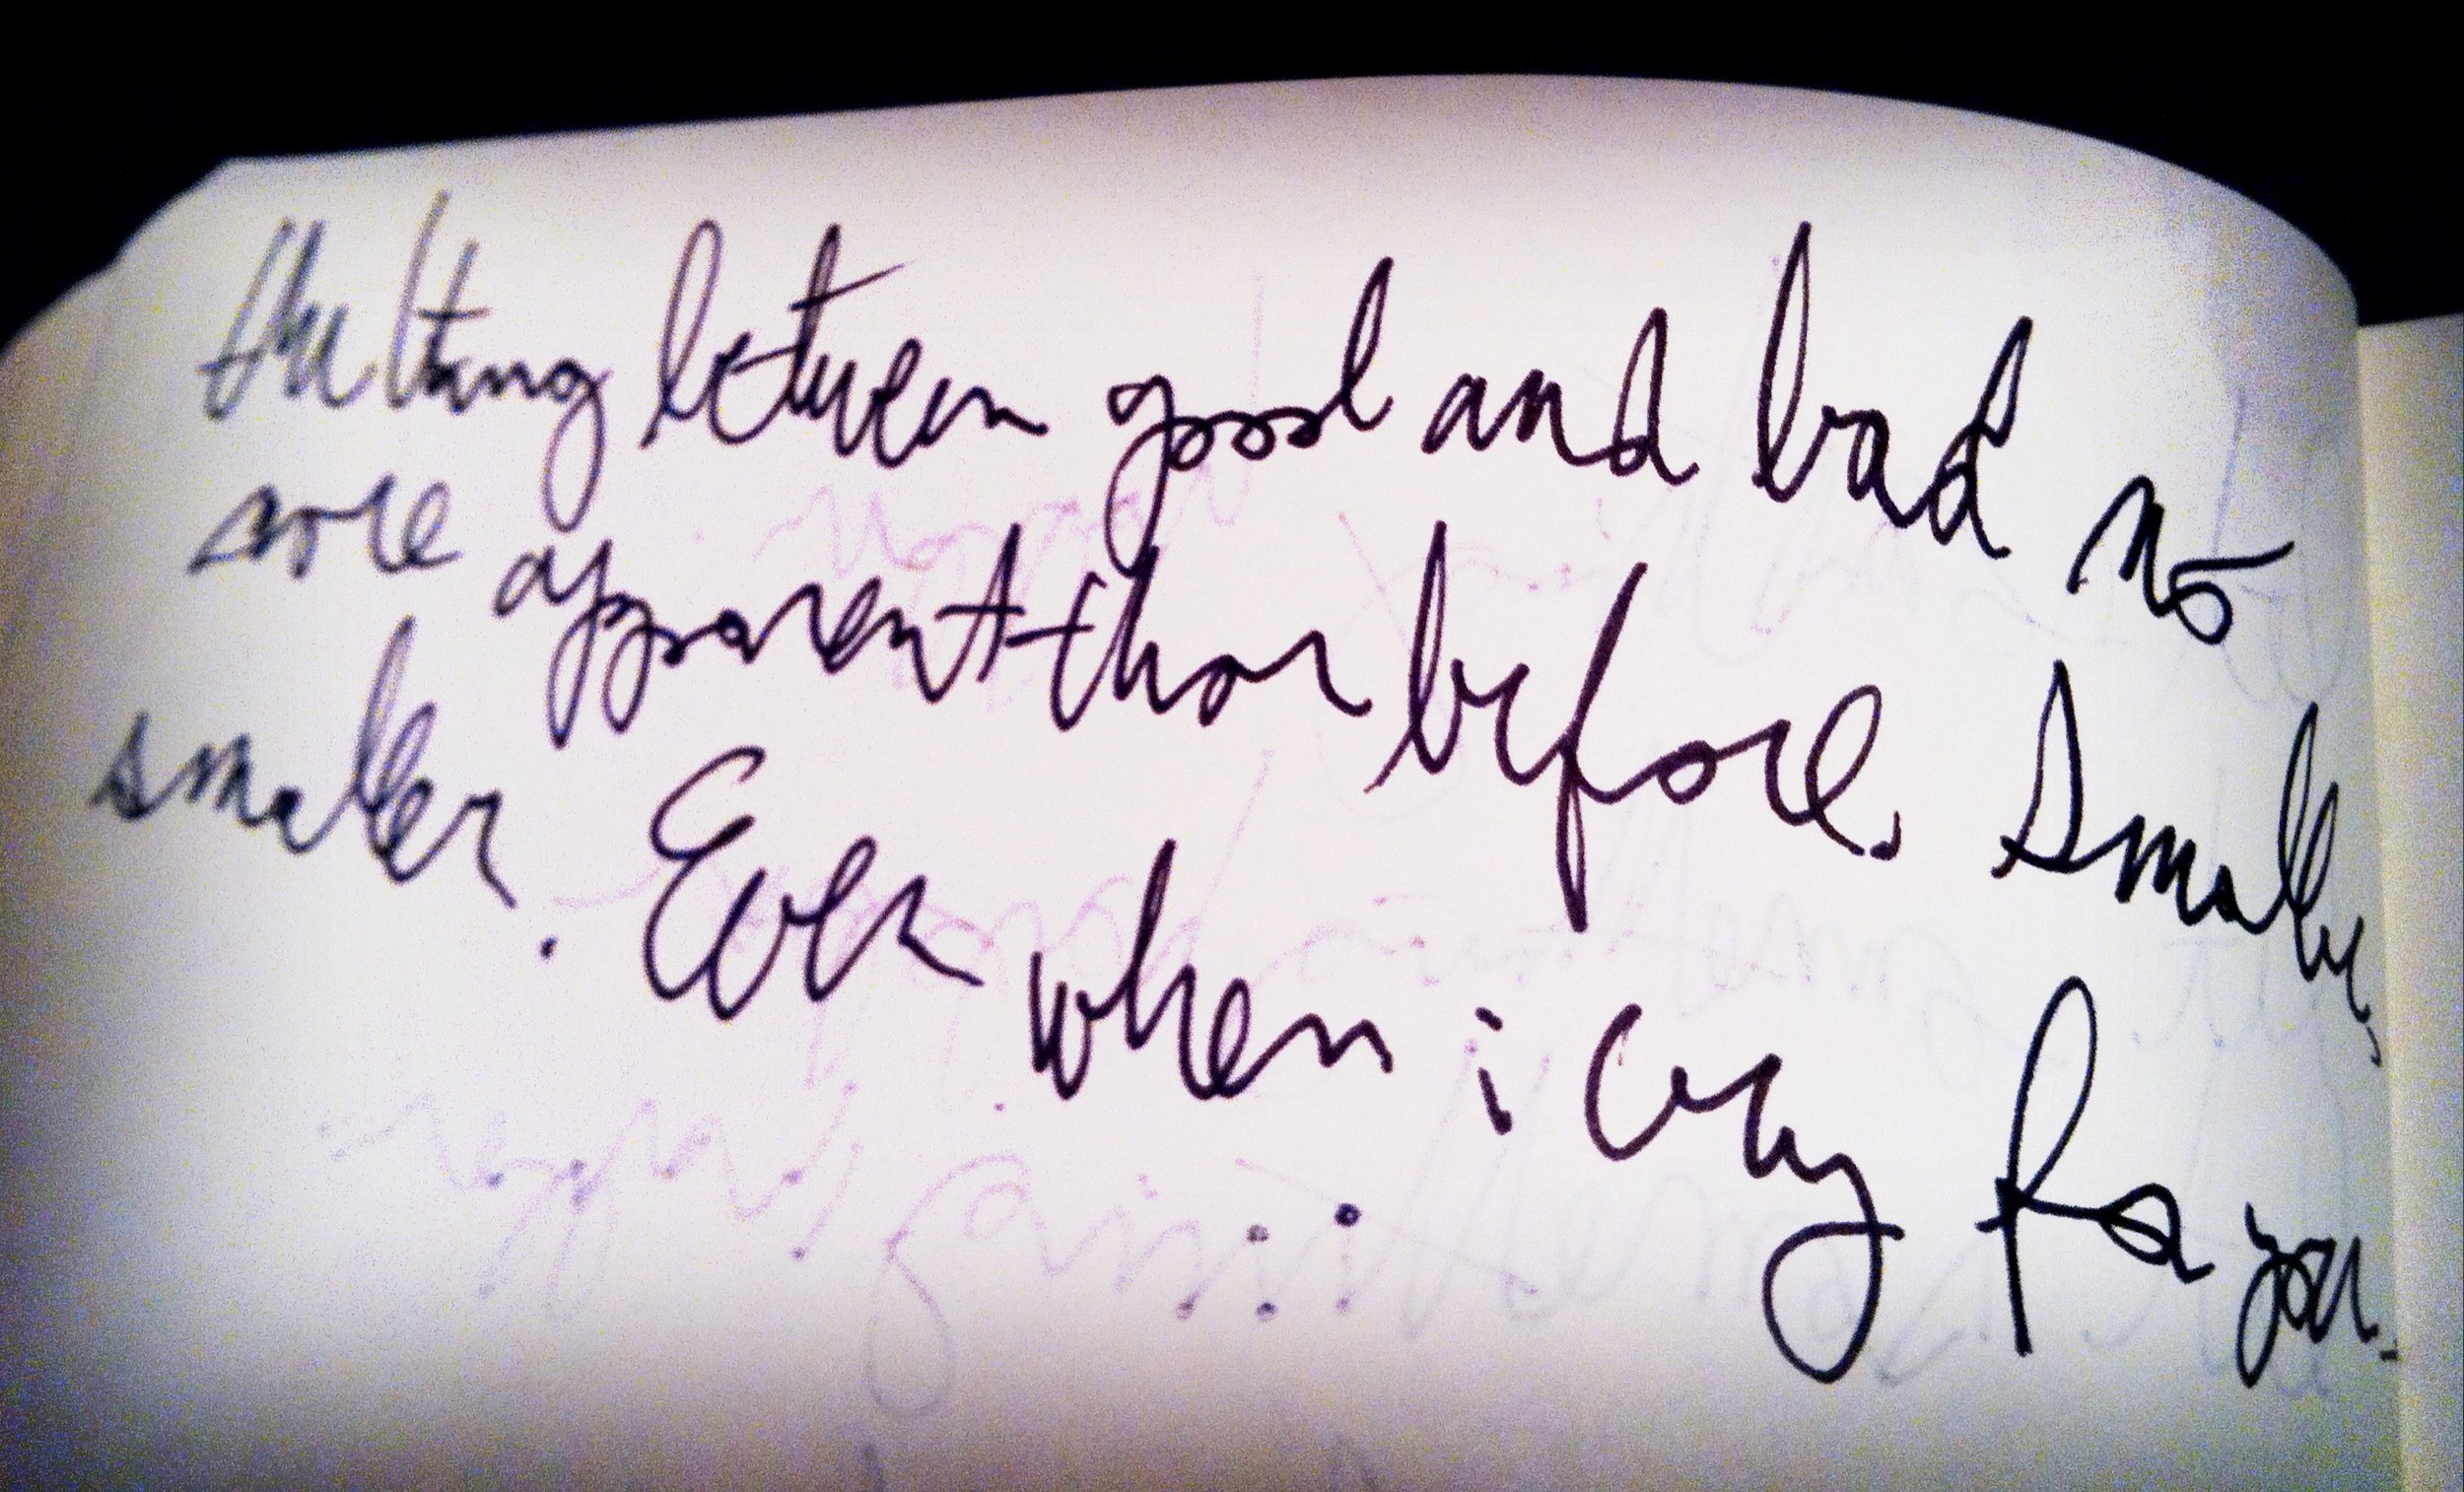 the thing between good and bad no
more apparent than before. Smaller,
smaller. Even when i cry for you.